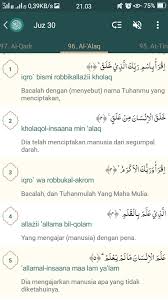 0,39KB/s 21.03 75%
Juz 30
97. Al-Qadr 96. Al-'Alaq 95. At-Tin
1
اِقْرَأْ بِاسْمِ رَبِّكَ الَّذِيْ خَلَقَۚ
iqro` bismi robbikallazii kholaq
Bacalah dengan (menyebut) nama Tuhanmu yang menciptakan,
2
خَلَقَ الْاِنْسَانَ مِنْ عَلَقٍۚ
kholaqol-insaana min 'alaq
Dia telah menciptakan manusia dari segumpal darah.
3
اِقْرَأْ وَرَبُّكَ الْاَكْرَمُۙ
iqro` wa robbukal-akrom
Bacalah, dan Tuhanmulah Yang Maha Mulia.
4
الَّذِيْ عَلَّمَ بِالْقَلَمِۙ
allazii 'allama bil-qolam
Yang mengajar (manusia) dengan pena.
5
عَلَّمَ الْاِنْسَانَ مَا لَمْ يَعْلَمْۗ
'allamal-insaana maa lam ya'lam
Dia mengajarkan manusia apa yang